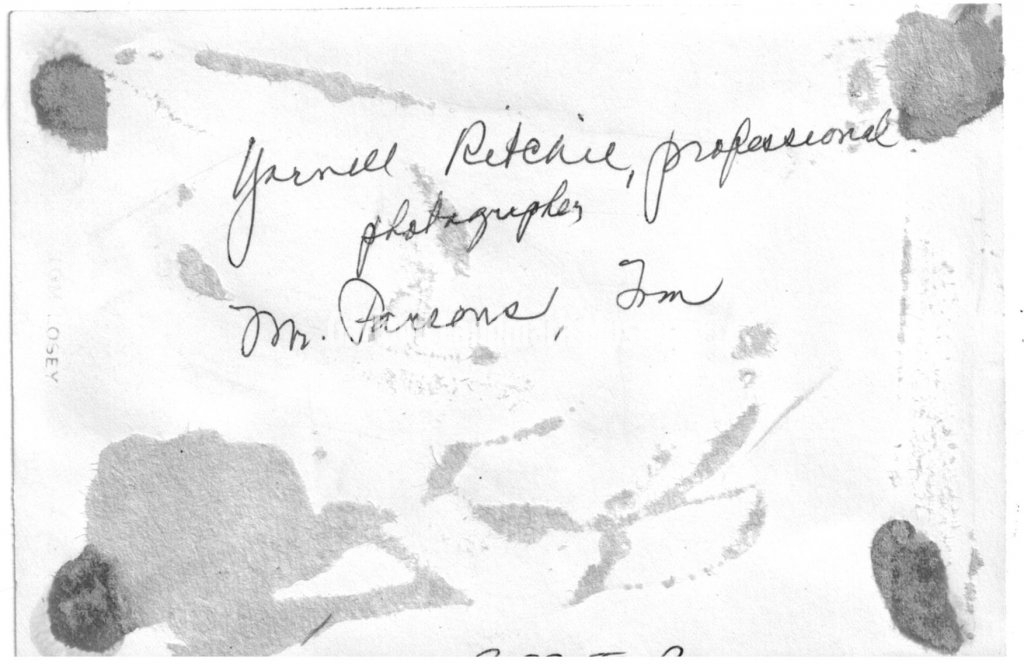 Yarnell Ritchie, professional
photographer
Mr. Parsons, Tom
OSEY